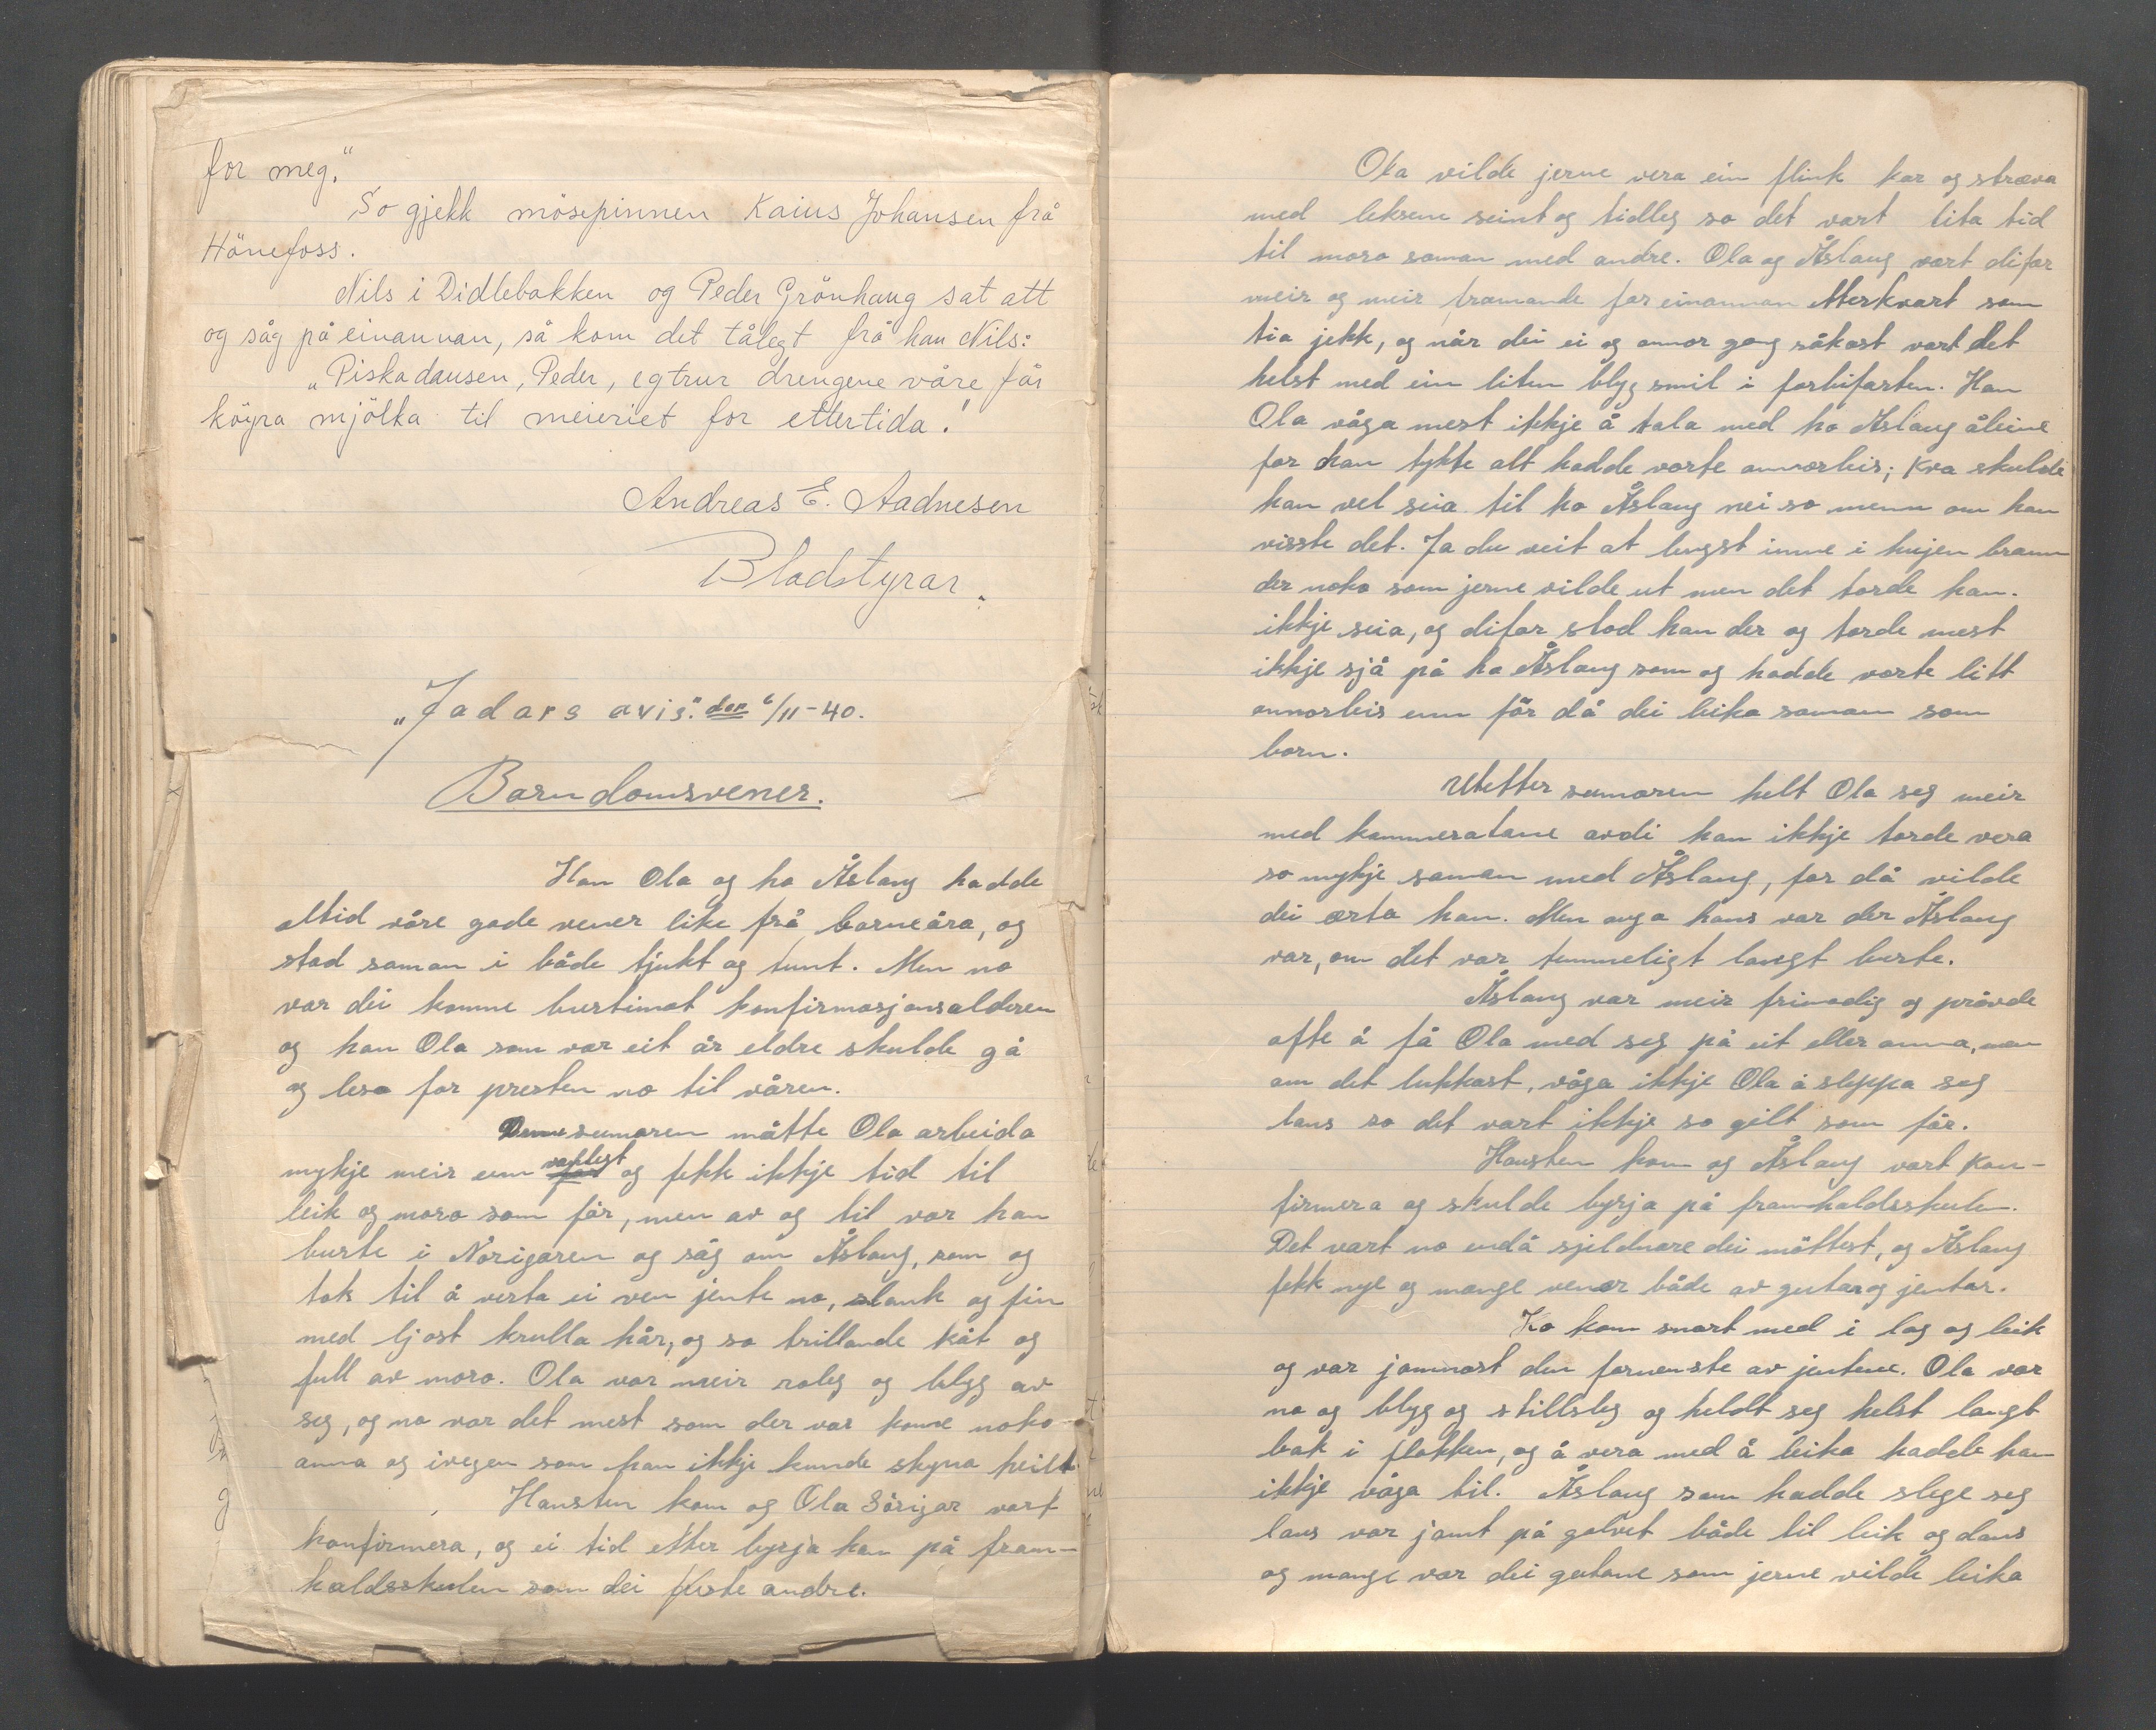 for meg."
So gjekk mösepinnen Kaius Johansen frå
Hönefoss.
Nils i Didlebakken og Peder Grönhaug sat att
og såg på einannan, så kom det tålegt frå han Nils:
"Piskadausen, Peder, eg trur drengene våre får
köyra mjölka til meieriet for ettertida!
Andreas E. Aadnesen
Bladstyrar.
"Jadars avis". den 6/11-40.
Barndomsvener.
Han Ola og ho Åslaug hadde
altid våre gode vener like frå barneåra, og
stod saman i både tjukt og tunt. Men no
var dei komne burtimot konfirmasjonsalderen
og han Ola som var eit år eldre skulde gå
og lesa for presten no til våren.
Denne sumaren måtte Ola arbeida
mykje meir enn vanlest og fekk ikkje tid til
leik og moro som för, men av og til var han
burte i Norigaren og såg om Åslaug, som og
tok til å verta ei ven jente no, slank og fin
med ljost krulla hår, og so trillande kåt og
full av moro. Ola var meir roleg og blyg av
seg, og no var det mest som der var kome noko
anna og ivegen som han ikkje kunde skyna heilt.
Hausten kom og Ola Sörigar vart
konfirmera, og ei tid etter byrja han på fram-
haldsskulen som dei fleste andre.
Ola vilde jerne vera ein flink kar og streva
med leksene seint og tidleg so det vart lita tid
til moro saman med andre. Ola og Åslaug vart difor
meir og meir framande for einannan etterkvart som
tia jekk, og når dei ei og annor gong råkast vart det
helst med ein liten blyg smil i forbifarten. Han
Ola våga mest ikkje å tala med ho Åslaug åleine
for han tykte alt hadde vorte annorleis; kva skulde
han vel seia til ho Åslaug nei so menn om han
visste det. Ja du veit at lengst inne i hugen brann
der noko som jerne vilde ut men det torde han
ikkje seia, og difor stod han der og torde mest
ikkje sjå på ho Åslaug som og hadde vorte litt
annorleis enn för då dei leika saman som
born.
Utetter sumaren helt Ola seg meir
med kammeratane avdi han ikkje torde vera
so mykje saman med Åslaug, for då vilde
dei ærta han. Men auga hans var der Åslaug
var, om det var temmeligt langt burte.
Åslaug var meir frimodig og prövde
ofte å få Ola med seg på eit eller anna, men
om det lukkast, våga ikkje Ola å sleppa seg
laus so det vart ikkje so gilt som för.
Hausten kom og Åslaug vart kon-
firmera og skulde byrja på framhaldsskulen.
Det vart no endå sjeldnare dei möttest, og Åslaug
fekk nye og mange vener både av gutar og jentar.
Ho kom snart med i lag og leik
og var jamnast den fornenste av jentene. Ola var
no og blyg og stillsleg og heldt seg helst langt
bak i flokken, og å vera med å leika hadde han
ikkje våga til. Åslaug som hadde slege seg
laus var jamt på golvet både til leik og dans
og mange var dei gutane som jerne vilde leika